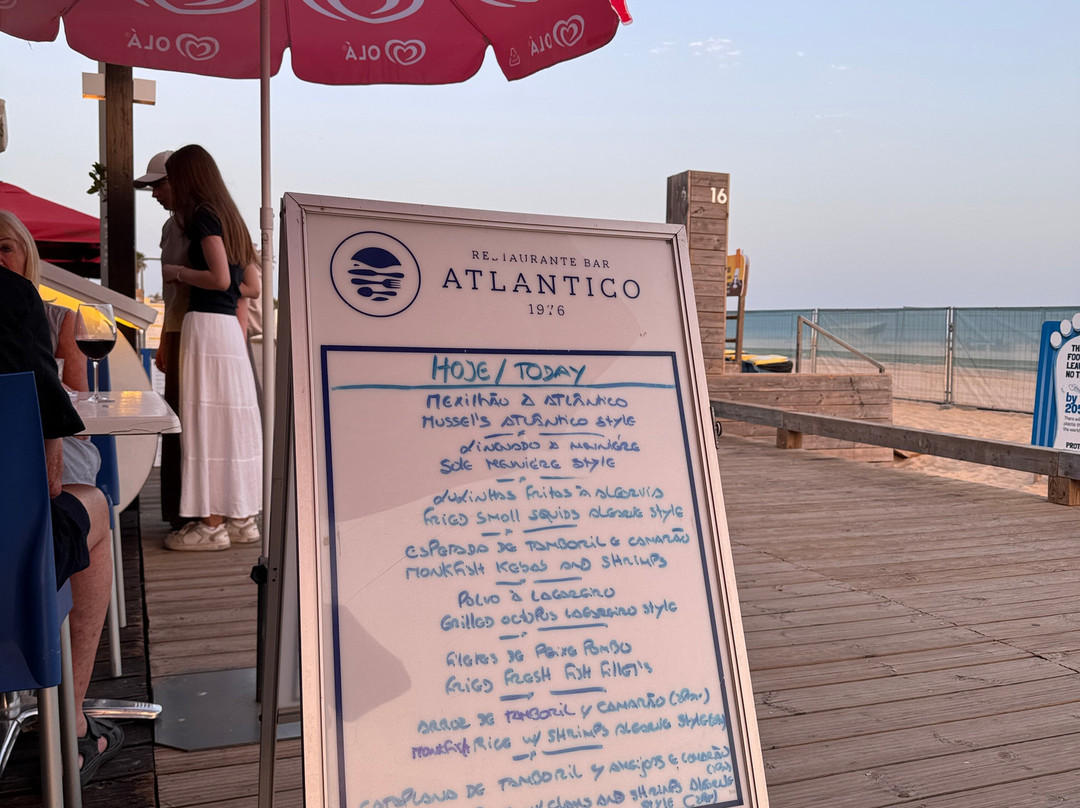 OLÁ
OLÁ
OLÁ
16
RESTAURANTE BAR
ATLANTICO
1976
HOJE / TODAY
MEXILHÃO À ATLÂNTICO
MUSSEL'S ATLÂNTICO STYLE
LINGUADO À MENIÉRE
SOLE MENIÉRE STYLE
LULINHAS FRITAS À ALGARVIA
FRIED SMOLL SQUIDS ALGARVE STYLE
ESPETADA DE TAMBORIL E CAMARÃO
MONKFISH KEBAS AND SHRIMPS
POLVO À LAGAREIRO
GRILLED OCTOPUS LAGAREIRO STYLE
FILETES DE PEIXE POMBO
FRIED FRESH FISH FILLET'S
ARROZ DE TAMBORIL Y CAMARÃO
MONKFISH RICE W/ SHRIMPS ALGARVE STYLE
CATAPLANA DE TAMBORIL Y AMEIJOAS E CAMARÃO
CLAMS AND SHRIMPS ALGARVE
STYLE
FOO
LEA
NO T
by
205
PROT